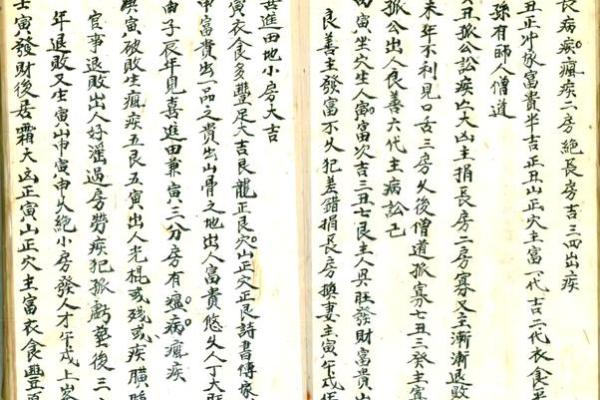 長病疾瘋疾二房絶長房吉三四出疾
丑正冲豕富貴半吉正丑山正穴主富一代吉二代衣食平
孫有師人僧道
丑孤公訟疾亡大凶主損長房二房寡又主漸漸退敗
未年不利見口舌三房久後僧道孤寡七丑三癸主寡
孤公出人良善六代主病訟己
寅坐穴生人寅富次吉三丑七艮主人興旺發財富貴出
良善主發富不久犯差錯損長房換妻主寅午戌
甚進田地小房大吉
寅衣食多豐足大吉艮龍正艮穴山正穴正艮詩書傳家
申富貴出一品之貴出山骨之地出人富貴悠久人丁大旺
由子辰年見喜進田兼寅三分房有瘟病瘋疾
疾寅破敗生瘋疾五艮五寅出人光棍或殘或疾
官事退敗出人好滛過房勞疾犯孤虧墓後三
年退敗又生寅山申寅申久絶小房發人才午戌上
寅發財後居霜大凶正寅山正穴主富衣食豐